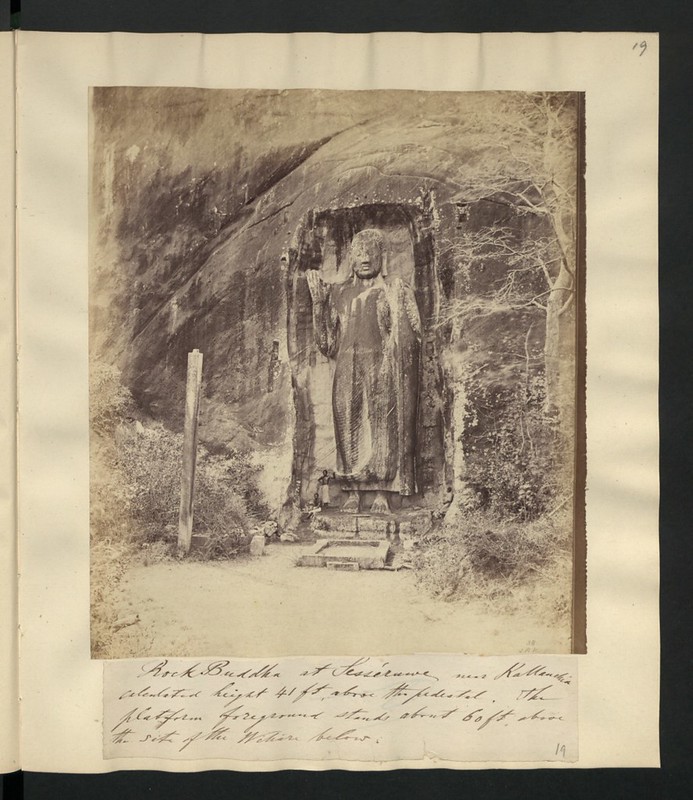 19
Rock Buddha at Sesséruwe near
calculated height 41 ft. above the pedestal. The
platform foreground stands about 60 ft. above
the site of the Wihare below.
19